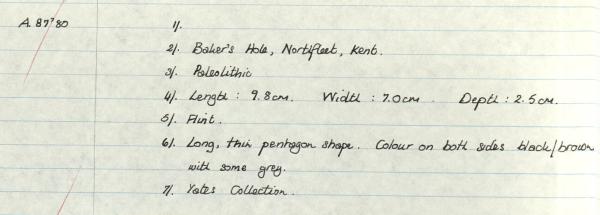 A. 87'80 1/.
2/. Baker's Hole, Northfleet, Kent.
3/. Paleolithic
4/. Length : 9.8cm. Width : 7.0cm. Depth : 2.5cm.
5/. Flint.
6/. Long, thin pentagon shape. Colour on both sides black/brown
with some grey.
7/. Yates Collection.